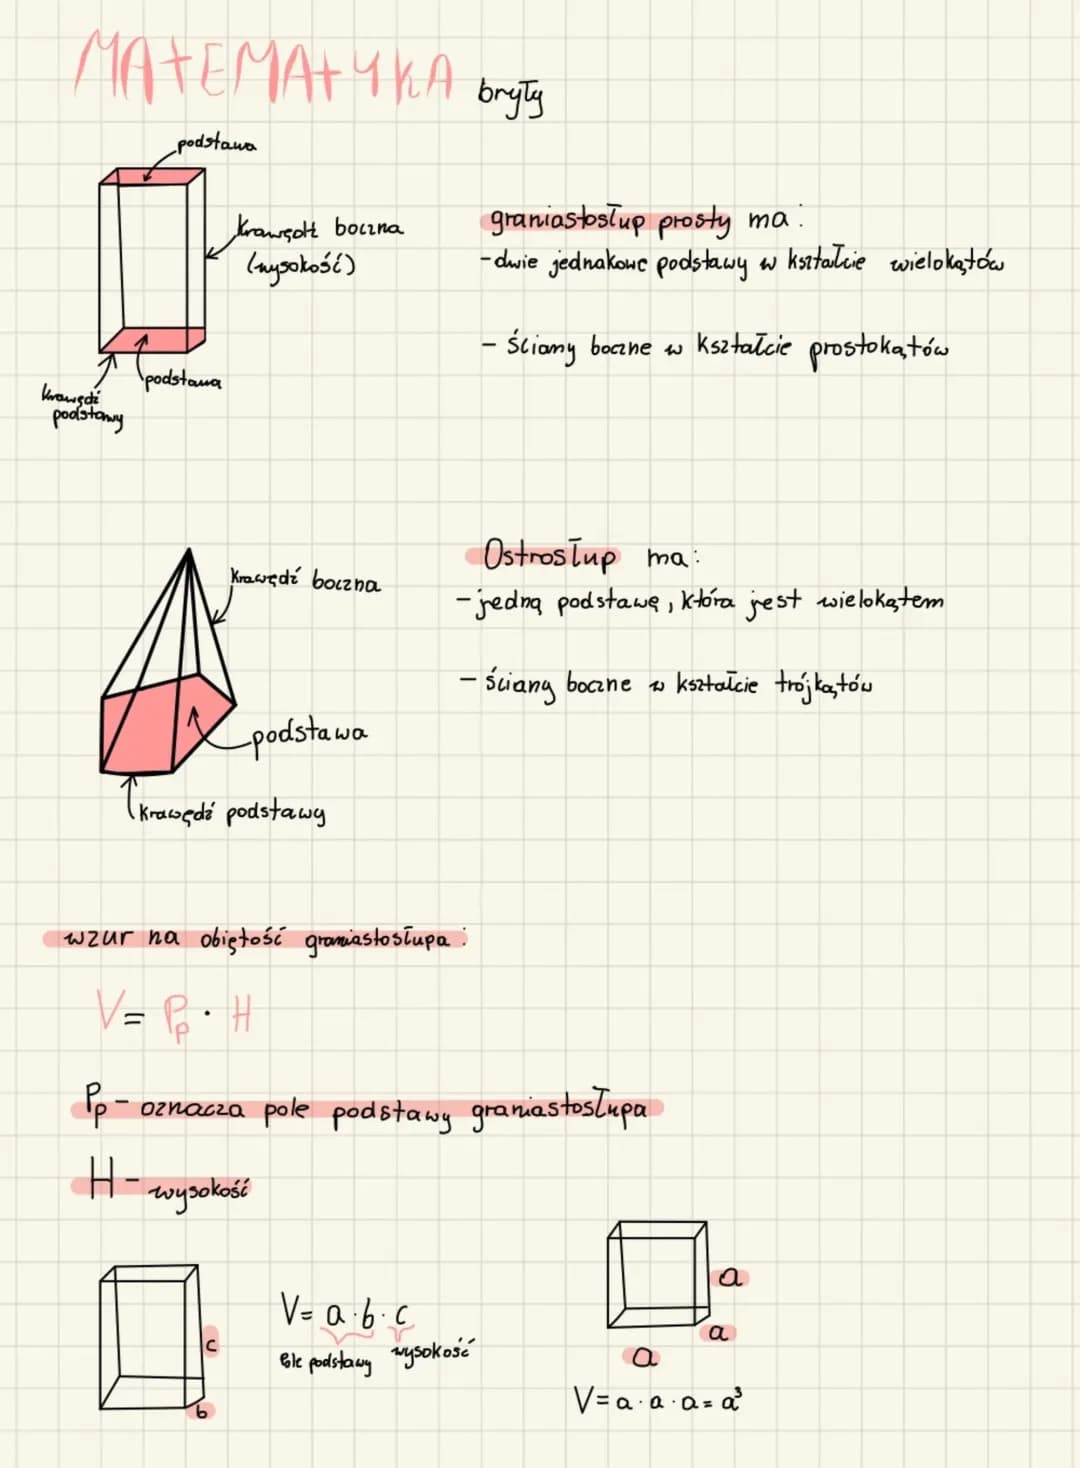 MATEMATYKA bryły
podstawa
krawędź boczna
(wysokość)
podstawa
krawędź
podstawy
graniastosłup prosty ma:
- dwie jednakowe podstawy w kształcie wielokątów
- ściany boczne w kształcie prostokątów
krawędź boczna
podstawa
krawędź podstawy
Ostrosłup ma:
- jedną podstawę, która jest wielokątem
- ściany boczne w kształcie trójkątów
wzur na objętość graniastosłupa:
V = Pp · H
Pp - oznacza pole podstawy graniastosłupa
H - wysokość
c
b
V = a · b · c
Pole podstawy wysokość
a
a
a
V = a · a · a = a³